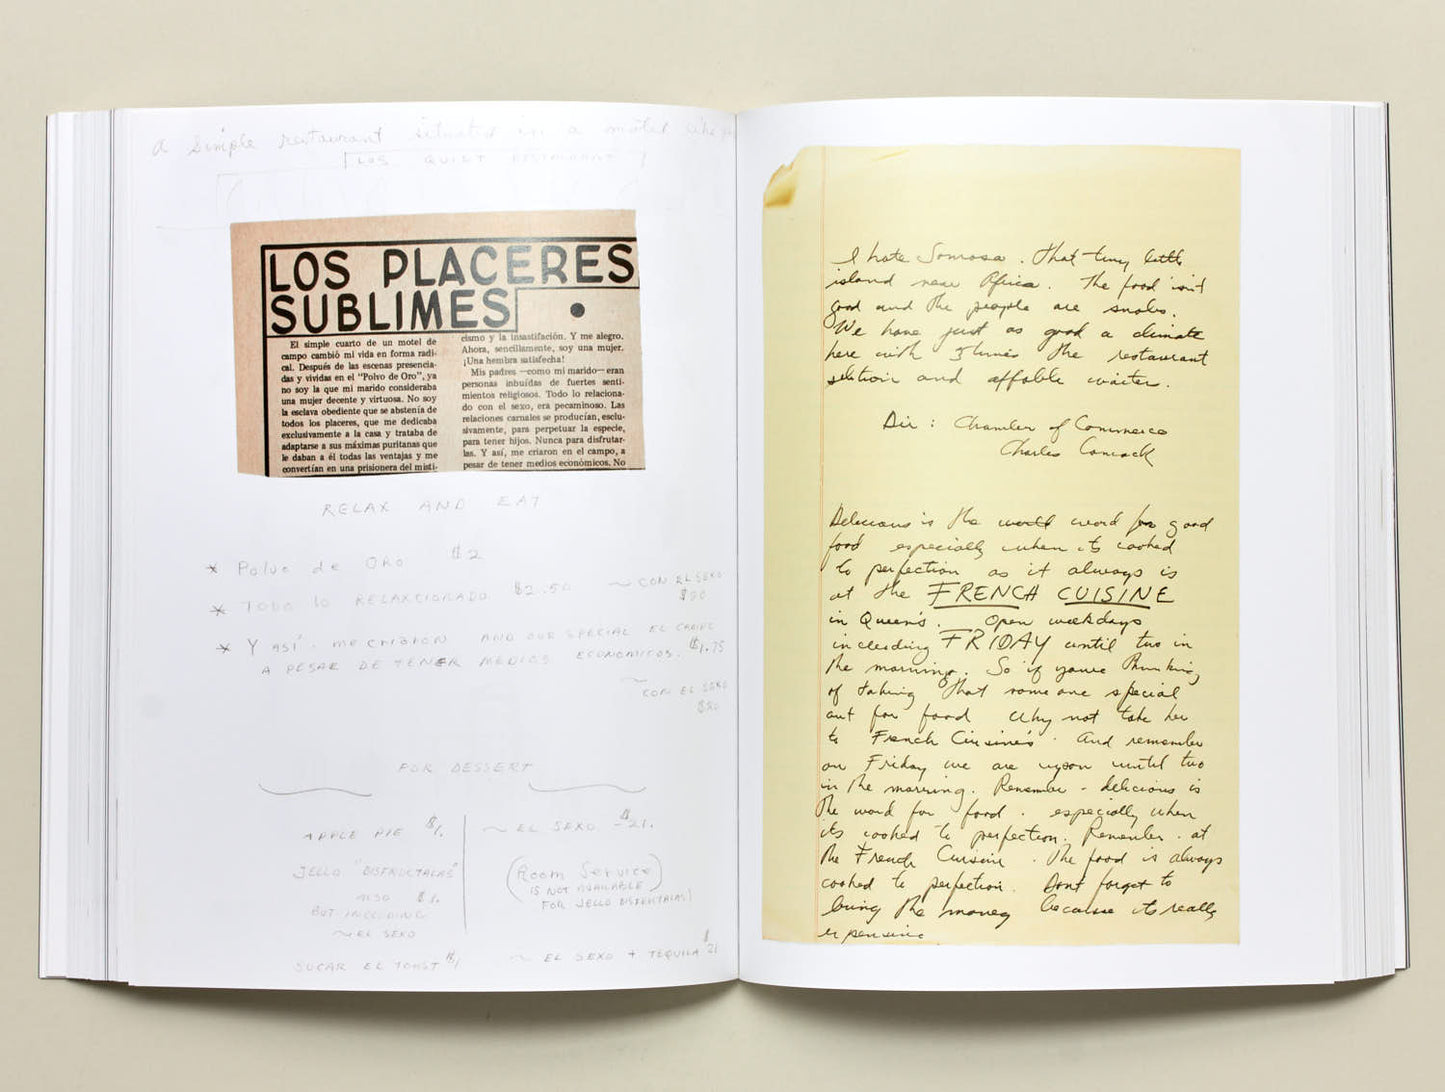 a simple restaurant situated in a motel
LOS QUIET RESTAURANT
LOS PLACERES
SUBLIMES
El simple cuarto de un motel de
campo cambió mi vida en forma radi-
cal. Después de las escenas presencia-
das y vividas en el “Polvo de Oro”, ya
no soy la que mi marido consideraba
una mujer decente y virtuosa. No soy
la esclava obediente que se abstenía de
todos los placeres, que me dedicaba
exclusivamente a la casa y trataba de
adaptarse a sus máximas puritanas que
le daban a él todas las ventajas y me
convertían en una prisionera del misti-
cismo y la insastifación. Y me alegro.
Ahora, sencillamente, soy una mujer.
¡Una hembra satisfecha!
Mis padres —como mi marido— eran
personas inbuídas de fuertes senti-
mientos religiosos. Todo lo relaciona-
do con el sexo, era pecaminoso. Las
relaciones carnales se producían, esclu-
sivamente, para perpetuar la especie,
para tener hijos. Nunca para disfrutar-
las. Y así, me criaron en el campo, a
pesar de tener medios económicos. No
RELAX AND EAT
* Polvo de ORO $2
* TODO lo RELAXCIONADO $2.50 ~ CON EL SEXO
$20
* Y ASÍ, me CRIARON AND OUR SPECIAL EL CARIFE $1.75
A PESAR DE TENER MEDIOS ECONOMICOS.
~ CON EL SEXO
$20
FOR DESSERT
APPLE PIE $1.
JELLO "DISFRUCTALAS"
ALSO $1.
BUT INCLUDING
~ EL SEXO
SUCAR EL TOAST $1
~ EL SEXO $21.
(Room Service)
IS NOT AVAILABLE
FOR JELLO DISFRUTALAS)
~ EL SEXO + TEQUILA $21
I hate Somosa. That tiny little
island near Africa. The food isn't
good and the people are snobs.
We have just as good a climate
here with 3 times the restaurant
selection and affable waiters.
Dir: Chamber of Commerce
Charles Comack
Delicious is the world word for good
food especially when its cooked
to perfection as it always is
at the FRENCH CUISINE
in Queens. Open weekdays
including FRIDAY until two in
the morning. So if youre thinking
of taking that someone special
out for food why not take her
to French Cuisine's. And remember
on Friday we are upon until two
in the morning. Remember - delicious is
the word for food. especially when
its cooked to perfection. Remember. at
the French Cuisine. The food is always
cooked to perfection. Dont forget to
bring the money because its really
expensive